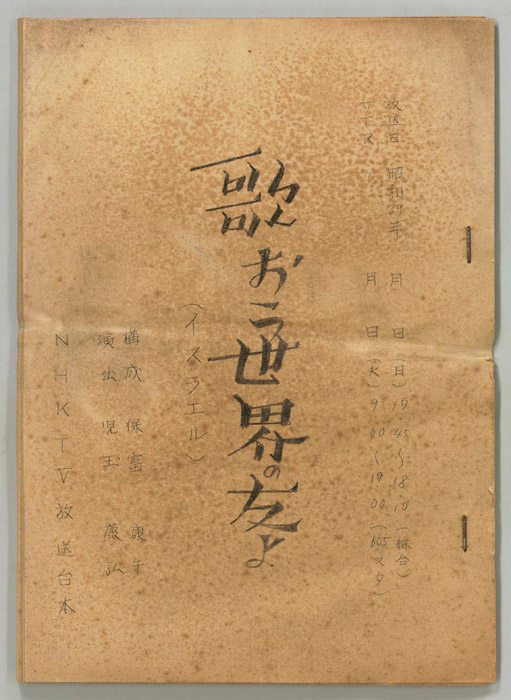 放送日 昭和39年 月 日(日)17 45〜18.00(総合)
VTR 月 日(火)9 00〜19 00(605スタ)
歌おう世界の友よ
(イスラエル)
構成 保富 康午
演出 児玉 康弘
NHKTV放送台本